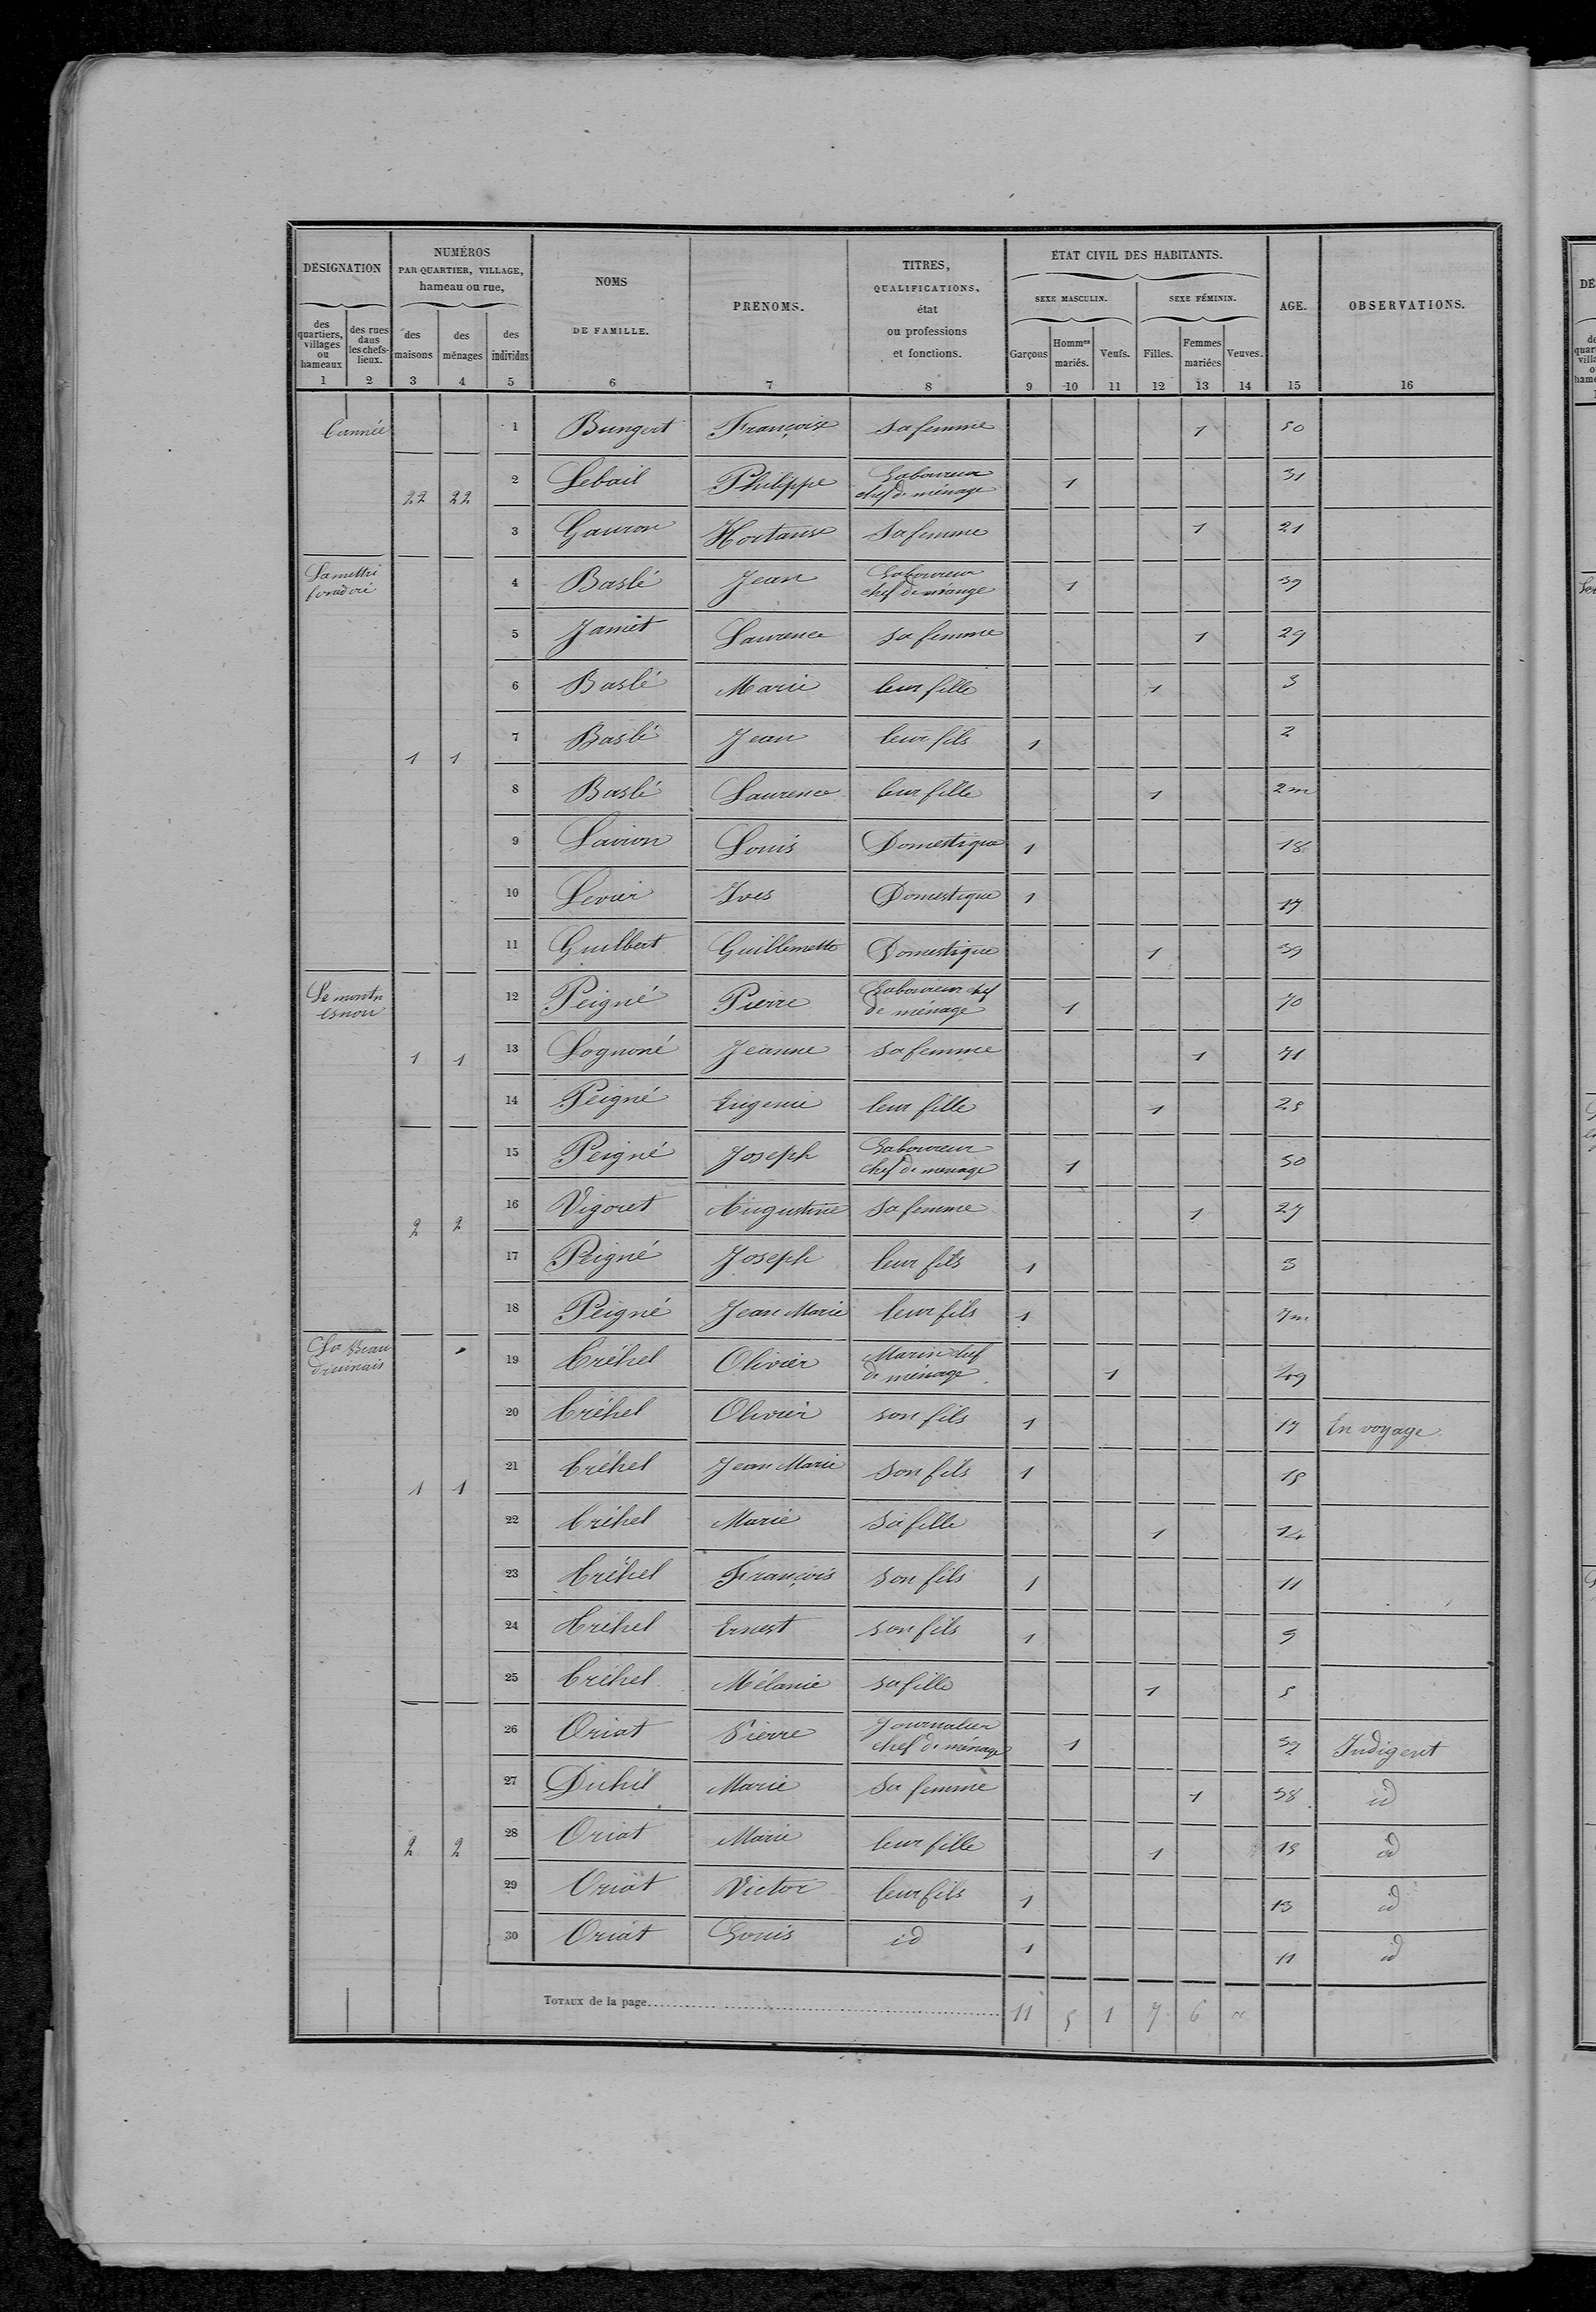 DÉSIGNATION NUMÉROS PAR QUARTIER, VILLAGE, hameau ou rue, NOMS DE FAMILLE. PRÉNOMS. TITRES, QUALIFICATIONS, état ou professions et fonctions. ÉTAT CIVIL DES HABITANTS. AGE. OBSERVATIONS.
SEXE MASCULIN. SEXE FÉMININ.
des quartiers, villages ou hameaux des rues dans les chefs-lieux. des maisons des ménages des individus Garçons Hommes mariés. Veufs. Filles. Femmes mariées Veuves.
1 2 3 4 5 6 7 8 9 10 11 12 13 14 15 16
1 Bungert Françoise sa femme 1 50
22 22 2 Lebail Philippe Laboureur chef de ménage 1 31
3 Gauron Hortanse sa femme 1 21
4 Baslé Jean Laboureur chef de ménage 1 39
5 Jamet Laurence sa femme 1 29
6 Baslé Marie leur fille 1 3
1 1 7 Baslé Jean leur fils 1 2
8 Baslé Laurence leur fille 1 2m
9 Lavion Louis Domestique 1 18
10 Levrier Yves Domestique 1 17
11 Guilbert Guillemette Domestique 1 39
12 Peigné Pierre Laboureur chef de ménage 1 70
1 1 13 Lognoné Jeanne sa femme 1 71
14 Peigné Eugenie leur fille 1 25
15 Peigné Joseph Laboureur chef de menage 1 30
2 2 16 Vigoret Augustine sa femme 1 27
17 Peigné Joseph leur fils 1 3
18 Peigné Jean Marie leur fils 1 7m
La Beau
19 Créhel Olivier Marin chef de ménage 1 49
20 Créhel Olivier son fils 1 17 En voyage
1 1 21 Créhel Jean Marie son fils 1 15
22 Créhel Marie sa fille 1 14
23 Créhel François son fils 1 11
24 Créhel Ernest son fils 1 9
25 Créhel Mélanie sa fille 1 5
26 Oriat Pierre Journalier chef de ménage 1 52 Indigent
27 Duhil Marie sa femme 1 38 id
2 2 28 Oriat Marie leur fille 1 15 id
29 Oriat Victor leur fils 1 13 id
30 Oriat Louis id 1 11 id
TOTAUX de la page 11 5 1 7 6 "